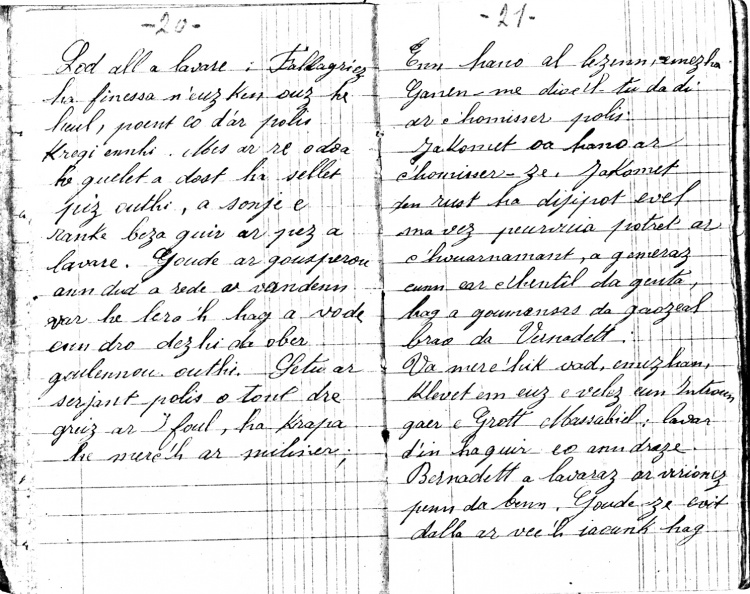 -20-
Lod all a lavare : Fallagriez
ha finessa n'euz ken ouz he
heul, poent eo d'ar polis
kregi ennhi. Mes ar re o doa
he guelet a dost ha sellet
piz outhi, a sonje e
ranke beza guir ar pez a
lavare. Goude ar gousperou
ann dud a rede a vandenn
var he lerc'h hag a vode
enn dro dezhi da ober
goulennou outhi. Setu ar
serjant polis o tont dre
greiz ar foul, ha krapa
he merc'h ar miliner;
-21-
Enn hano al lezenn, emezha
Ganen-me dioc'h-tu da di
ar c'homisser polis.
Jakomet oa hano ar
c'homisser-ze. Jakomet
rust ha difipot evel
ma vez peurvuia potret ar
c'houarnamant, a gemeraz
eunn ear c'hentil da genta,
hag a gounensas da gaozeal
brao da Vernadett :
Va merc'hik vad, emezhan,
klevet em euz e velez eun Introun
gaer e Grott Massabiel ; lavar
d'in ha guir eo ann draze.
Bernadett a lavaraz ar virionez
penn da benn. Goude-ze evit
dalla ar verc'h iaouank hag